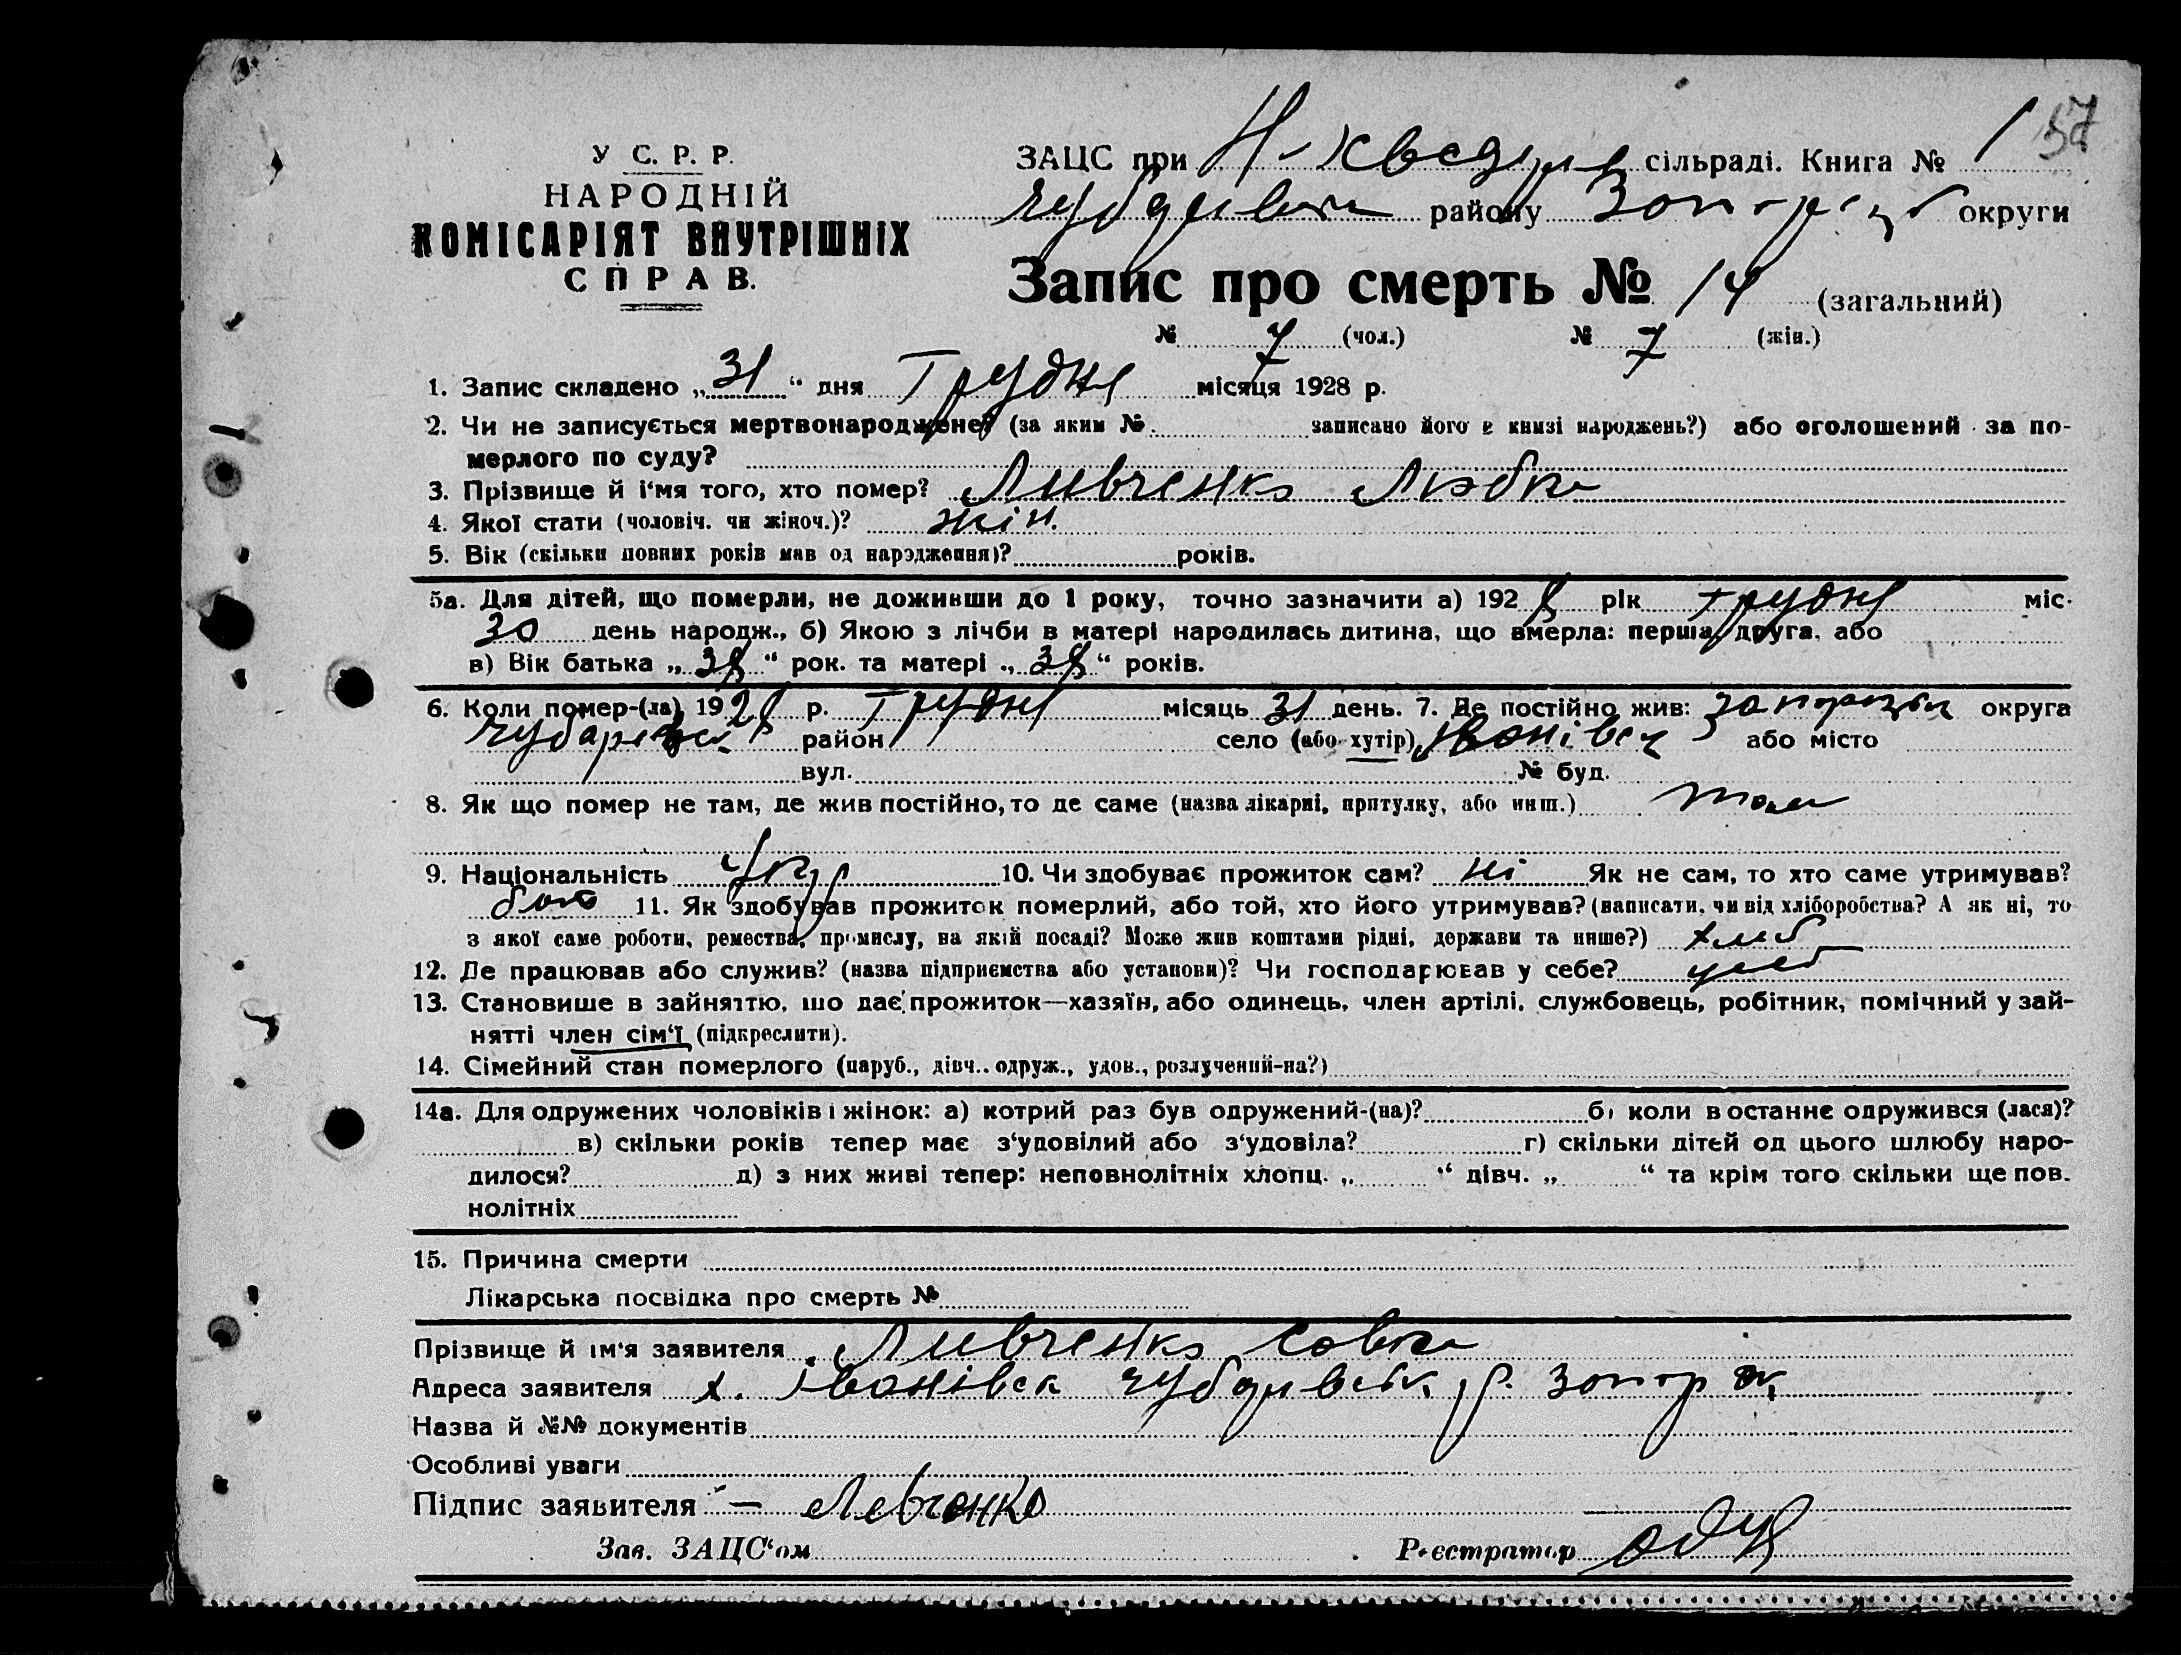 57
У С. Р. Р.
НАРОДНІЙ
КОМІСАРІЯТ ВНУТРІШНІХ
СПРАВ.
ЗАЦС при сільраді. Книга № 1
району округи
Запис про смерть № 14 (загальний)
№ 7 (чол.) № 7 (жін.)
1. Запис складено „31“ дня Грудня місяця 1928 р.
2. Чи не записується мертвонароджене? (за яким № записано його в книзі народжень?) або оголошений за по-
мерлого по суду?
3. Прізвище й і‘мя того, хто помер? Ливченко Любка
4. Якої стати (чоловіч. чи жіноч.)? жін.
5. Вік (скільки повних років мав од народження)? років.
5а. Для дітей, що померли, не доживши до 1 року, точно зазначити а) 1928 рік грудня міс.
30 день народж., б) Якою з лічби в матері народилась дитина, що вмерла: перша, друга, або
в) Вік батька „38“ рок. та матері „38“ років.
6. Коли помер-(ла) 1928 р. Грудня місяць 31 день. 7. Де постійно жив: округа
район село (або хутір) або місто
вул. № буд.
8. Як що помер не там, де жив постійно, то де саме (назва лікарні, притулку, або инш.)
9. Національність Укр 10. Чи здобуває прожиток сам? ні Як не сам, то хто саме утримував?
бать 11. Як здобував прожиток померлий, або той, хто його утримував? (написати, чи від хліборобства? А як ні, то
з якої саме роботи, ремества, промислу, на якій посаді? Може жив коштами рідні, держави та инше?) хліб
12. Де працював або служив? (назва підприємства або установи)? Чи господарював у себе? у себ
13. Становище в зайняттю, що дає прожиток—хазяїн, або одинець, член артілі, службовець, робітник, помічний у зай-
нятті член сім‘ї (підкреслити).
14. Сімейний стан померлого (паруб., дівч., одруж., удов., розлучений-на?)
14а. Для одружених чоловіків і жінок: а) котрий раз був одружений-(на)? б) коли в останнє одружився (лася)?
в) скільки років тепер має з‘удовілий або з‘удовіла? г) скільки дітей од цього шлюбу наро-
дилося? д) з них живі тепер: неповнолітніх хлопц. „ “ дівч. „ “ та крім того скільки ще пов.
нолітніх
15. Причина смерти
Лікарська посвідка про смерть №
Прізвище й ім‘я заявителя Ливченко Савка
Адреса заявителя х.
Назва й №№ документів
Особливі уваги
Підпис заявителя — Левченко
Зав. ЗАЦС‘ом Реєстратор